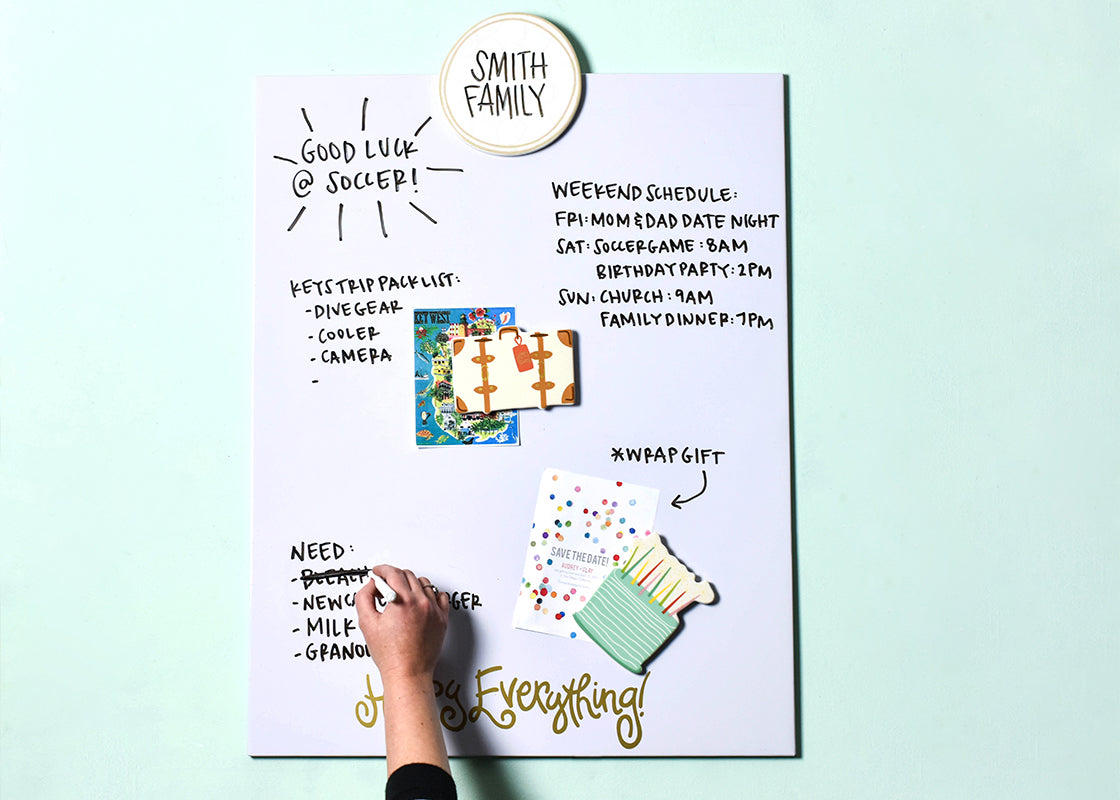 SMITH
FAMILY
GOOD LUCK
@ SOCCER!
WEEKEND SCHEDULE:
FRI: MOM & DAD DATE NIGHT
SAT: SOCCER GAME: 8AM
BIRTHDAY PARTY: 2PM
SUN: CHURCH: 9AM
FAMILY DINNER: 7PM
KEYS TRIP PACK LIST:
- DIVE GEAR
- COOLER
- CAMERA
-
KEY WEST
*WRAP GIFT
SAVE THE DATE!
AUDREY + CLAY
NEED:
- BLEACH
- NEW
- MILK
Everything!